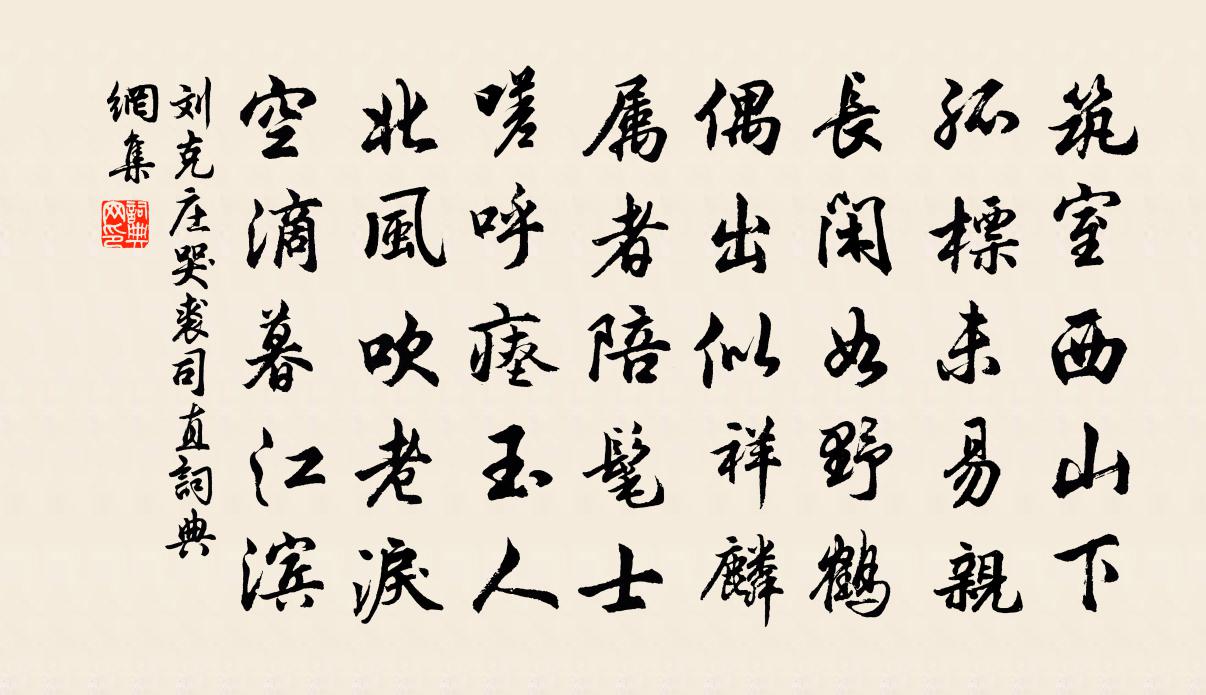 筑室西山下
孤標未易親
長閑如野鶴
偶出似祥麟
属者陪髦士
嗟呼瘞玉人
北風吹老淚
空滴暮江滨
刘克庄哭裘司直詞典
網集
詞典
网印